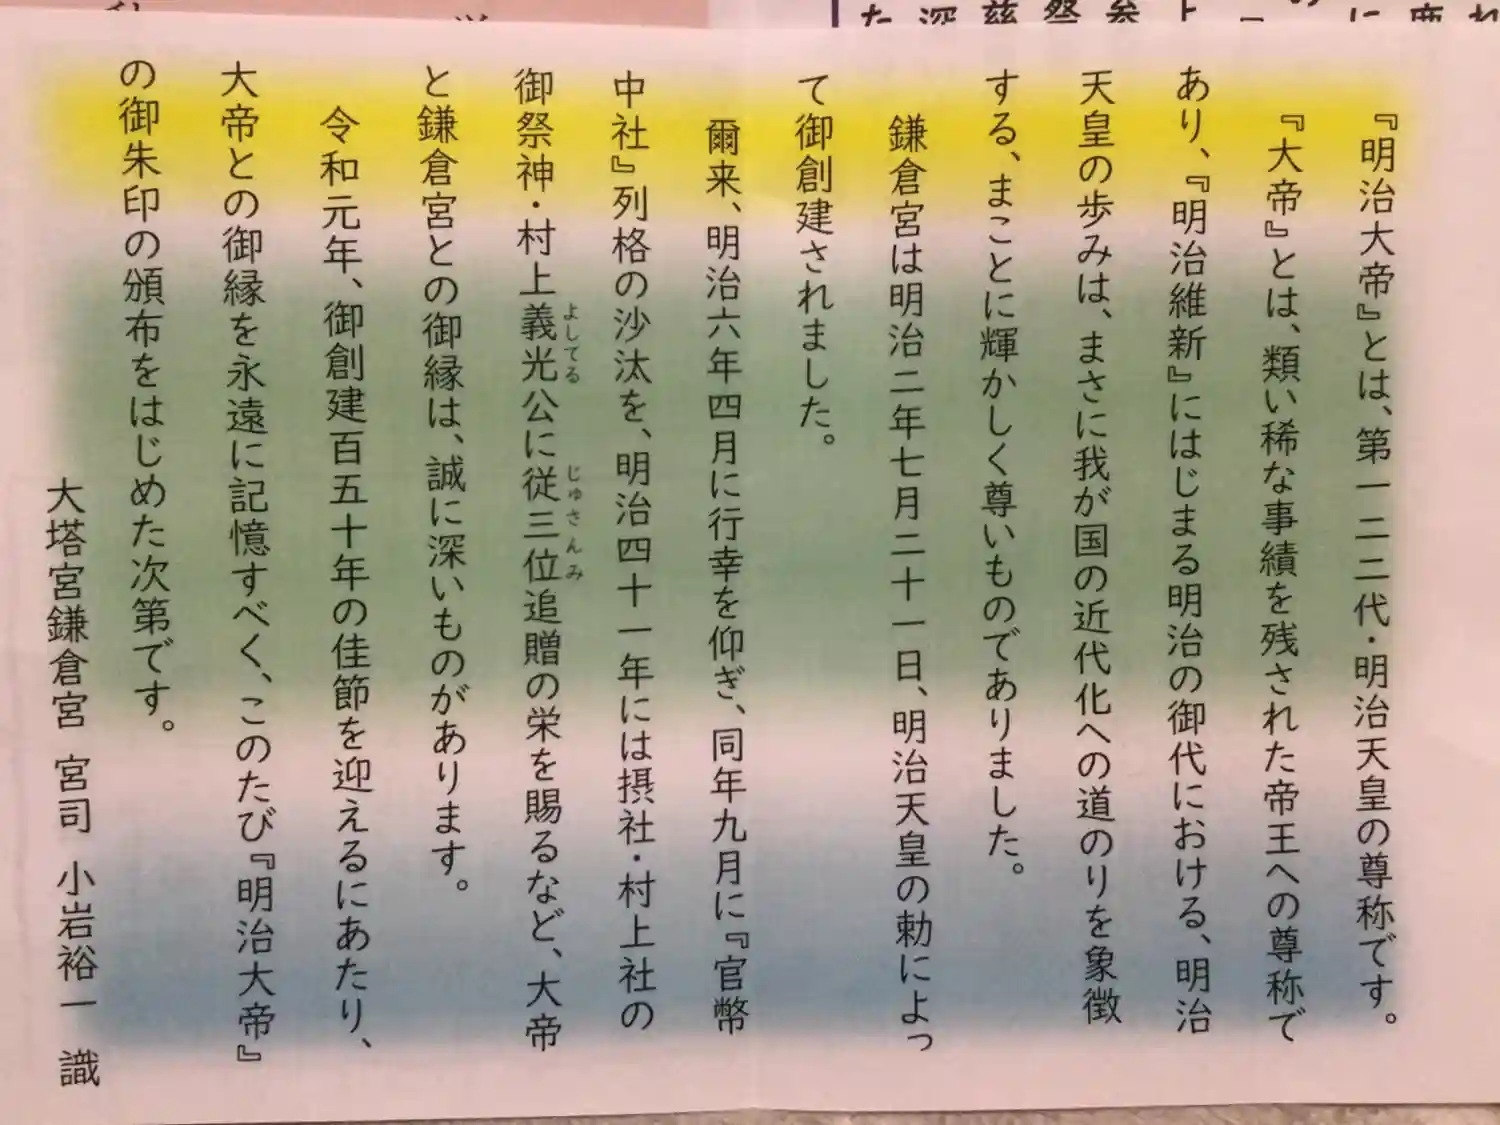 『明治大帝』とは、第一二二代・明治天皇の尊称です。
『大帝』とは、類い稀な事績を残された帝王への尊称で
あり、『明治維新』にはじまる明治の御代における、明治
天皇の歩みは、まさに我が国の近代化への道のりを象徴
する、まことに輝かしく尊いものでありました。
鎌倉宮は明治二年七月二十一日、明治天皇の勅によっ
て御創建されました。
爾来、明治六年四月に行幸を仰ぎ、同年九月に『官幣
中社』列格の沙汰を、明治四十一年には摂社・村上社の
御祭神・村上義光公に従三位追贈の栄を賜るなど、大帝
よしてる
じゅさんみ
と鎌倉宮との御縁は、誠に深いものがあります。
令和元年、御創建百五十年の佳節を迎えるにあたり、
大帝との御縁を永遠に記憶すべく、このたび『明治大帝』
の御朱印の頒布をはじめた次第です。
大塔宮鎌倉宮 宮司 小岩裕一 識